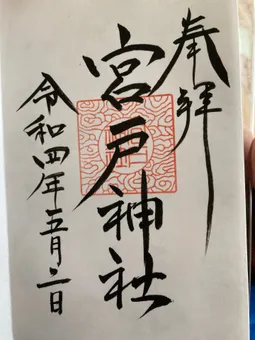 奉拝
宮戸神社
令和四年五月二日